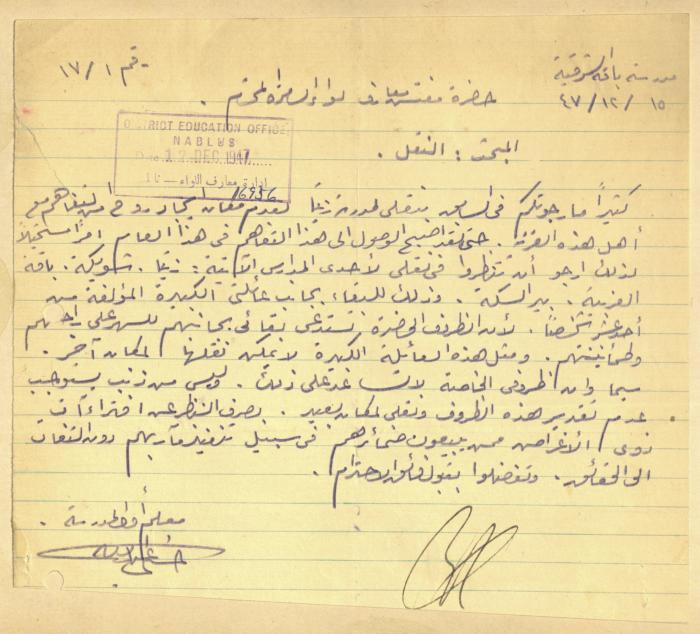 مدرسة باقة الشرقية
١٥/١٢/٤٧
رقم ١٧/١
حضرة مفتش معارف لواء السامرة المحترم.
المبحث: النقل.
DISTRICT EDUCATION OFFICE
NABLUS
17 DEC 1947
إدارة معارف اللواء — نابلس
16956
كثيراً ما رجوتكم في السابق بنقلي لمدرسة زيتا لعدم إمكان إيجاد روح من التفاهم مع
أهل هذه القرية. حتى لقد أصبح الوصول الى هذا التفاهم في هذا العام امراً مستحيلاً
لذلك ارجو أن تنظروا في نقلي لأحدى المدارس الآتية: زيتا. شويكة. باقة
الغربية. بير السكه. وذلك للبقاء بجانب عائلتي الكبيرة المؤلفة من
أحد عشر شخصاً. لأن الظروف الحاضرة تستدعي بقائي بجانبهم للسهر على راحتهم
وطمأنينتهم. ومثل هذه العائلة الكبيرة لا يمكن نقلها لمكان آخر.
سيما وان ظروفي الخاصة لا تساعد على ذلك. وليس من ذنب يستوجب
عدم تقدير هذه الظروف ونقلي لمكان بعيد. بصرف النظر عن افتراءآت
ذوى الاغراض ممن يبيعون ضمائرهم في سبيل تنفيذ مآربهم دون التفات
الى الحقائق. وتفضلوا بقبول فائق الاحترام.
معلم المدرسة.